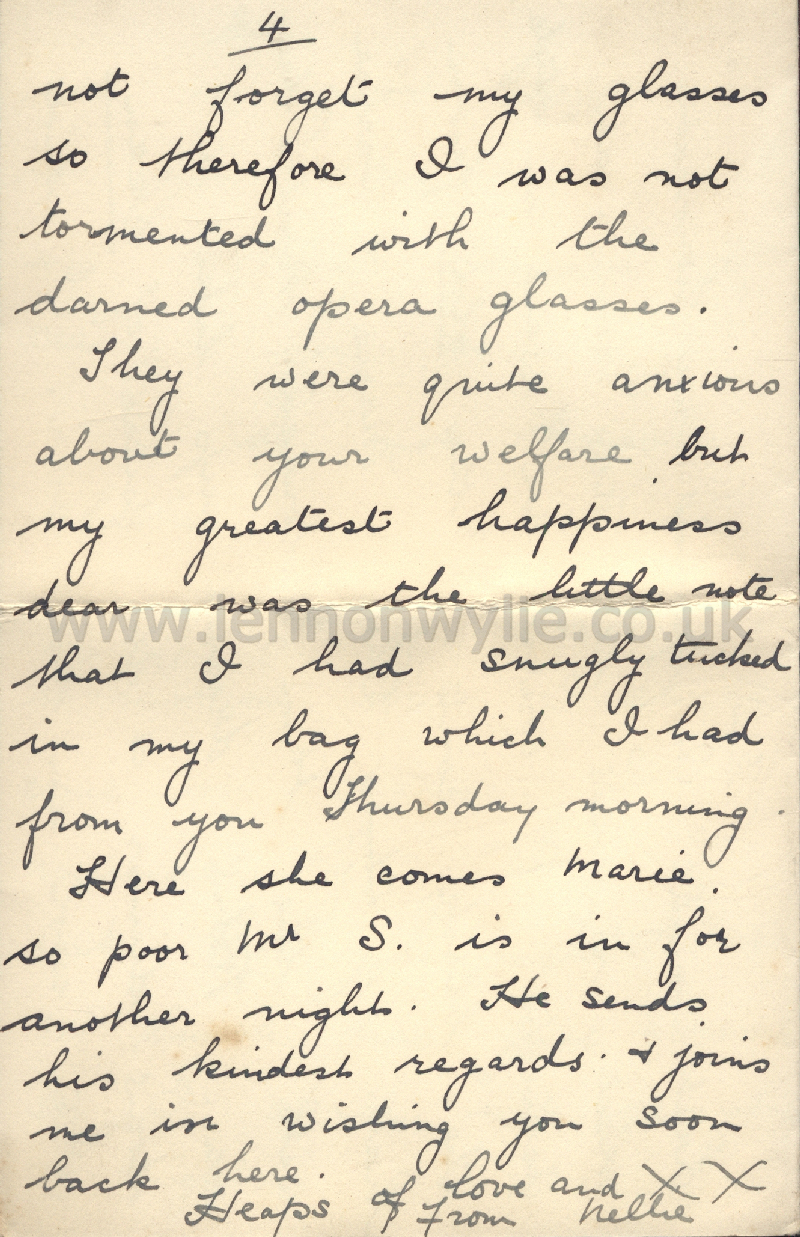 4
not forget my glasses
so therefore I was not
tormented with the
darned opera glasses.
They were quite anxious
about your welfare but
my greatest happiness
dear was the little note
www.lennonwylie.co.uk
that I had snugly tucked
in my bag which I had
from you Thursday morning.
Here she comes Marie.
so poor Mr S. is in for
another night. He sends
his kindest regards. & joins
me in wishing you soon
back here.
Heaps of love and X X
From Nellie